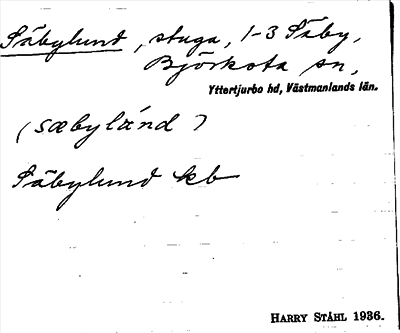 Säbylund, stuga, 1-3 Säby,
Björksta sn,
Yttertjurbo hd, Västmanlands län.
(sæbylánd)
Säbylund kb
HARRY STÅHL 1936.